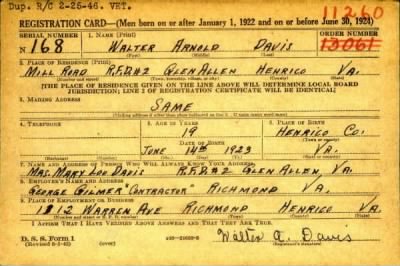 Dup. R/C 2-25-46. VET.
11260
REGISTRATION CARD—(Men born on or after January 1, 1922 and on or before June 30, 1924)
SERIAL NUMBER 1. NAME (Print) ORDER NUMBER
N 168 WALTER ARNOLD DAVIS 13061
2. PLACE OF RESIDENCE (Print)
MILL ROAD R.F.D.#2 GLEN ALLEN HENRICO VA.
[THE PLACE OF RESIDENCE GIVEN ON THE LINE ABOVE WILL DETERMINE LOCAL BOARD
JURISDICTION; LINE 2 OF REGISTRATION CERTIFICATE WILL BE IDENTICAL]
3. MAILING ADDRESS
SAME
4. TELEPHONE 5. AGE IN YEARS 6. PLACE OF BIRTH
19 HENRICO CO.
DATE OF BIRTH
JUNE 14TH 1923 VA.
7. NAME AND ADDRESS OF PERSON WHO WILL ALWAYS KNOW YOUR ADDRESS
MRS. MARY LOU DAVIS R.F.D.#2 GLEN ALLEN, VA.
8. EMPLOYER'S NAME AND ADDRESS
GEORGE GILMER "CONTRACTOR" RICHMOND VA.
9. PLACE OF EMPLOYMENT OR BUSINESS
1212 WARREN AVE RICHMOND HENRICO VA.
I AFFIRM THAT I HAVE VERIFIED ABOVE ANSWERS AND THAT THEY ARE TRUE.
D. S. S. Form 1
Walter A. Davis